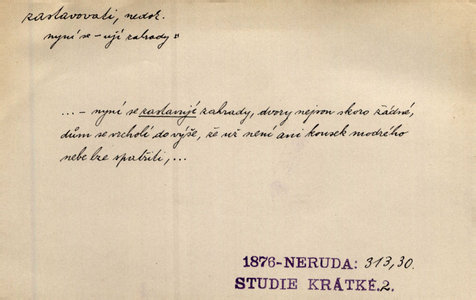 zastavovati, nedok.
nyní se -ují zahrady"
... - nyní se zastavují zahrady, dvory nejsou skoro žádné,
dům se vrcholí do výše, že už není ani kousek modrého
nebe lze spatřiti, ...
1876-NERUDA: 313,30.
STUDIE KRÁTKÉ.2.